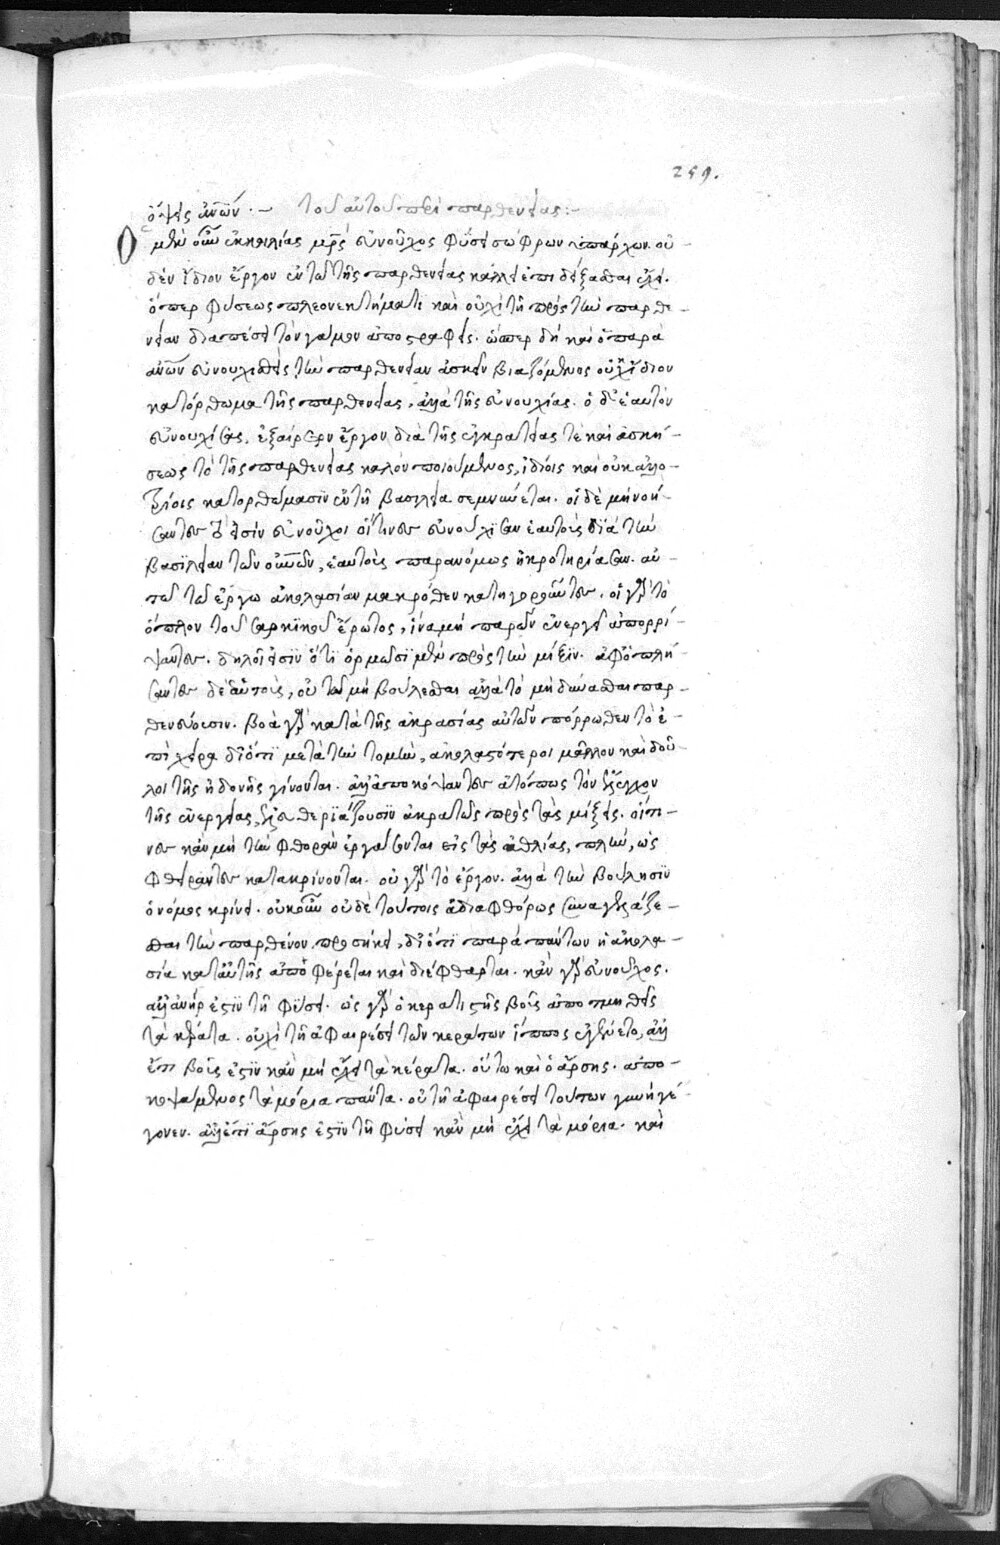 259.
ὄψεις ἀν̅ῶν. ~ τοῦ αὐτοῦ περὶ παρθενίας: ~
Ὁ μὲν οὖν ἐκ κοιλίας μρ̅ς εὐνοῦχος φύσει σώφρων ὑπάρχων. οὐ-
δὲν ἴδιον ἔργον ἐν τῷ τῆς παρθενίας κάλλει ἐπιδείξασθαι ἔχει.
ὅπερ φύσεως πλεονεκτήματι καὶ οὐχὶ τῇ πρὸς τὴν παρθε-
νίαν διαθέσει τὸν γάμον ἀποστραφείς. ὥσπερ δὴ καὶ ὁ παρὰ
ἀν̅ῶν εὐνουχισθεὶς τὴν παρθενίαν ἀσκεῖν βιαζόμενος οὐκ ἴδιον
κατόρθωμα τῆς παρθενίας, ἀλλὰ τῆς εὐνουχίας. ὁ δὲ ἑαυτὸν
εὐνουχίσας, ἐξαίρετον ἔργον διὰ τῆς ἐγκρατείας τὲ καὶ ἀσκή-
σεως τὸ τῆς παρθενίας καλὸν ποιούμενος, ἰδίοις καὶ οὐκ ἀλλο-
τρίοις κατορθώμασιν ἐν τῇ βασιλείᾳ σεμνύνεται. οἱ δὲ μὴ νοή-
σαντες τὸ εἰσὶν εὐνοῦχοι οἵτινες εὐνούχισαν ἑαυτοὺς διὰ τὴν
βασιλείαν τῶν οὐνῶν, ἑαυτοὺς παρανόμως ἠκρωτηρίασαν. αὐ-
τῷ τῷ ἔργῳ ἀκολασίαν μακρόθεν κατηγοροῦντες. οἱ γὰρ τὸ
ὅπλον τοῦ σαρκικοῦ ἔρωτος, ἵνα μὴ παρὸν ἐνεργῇ ἀπορρί-
ψαντες. δηλοί εἰσιν ὅτι ὁρμῶσι μὲν πρὸς τὴν μίξιν. ἀφοπλή-
σαντες δὲ αὑτοὺς, οὐ τῷ μὴ βούλεσθαι ἀλλὰ τὸ μὴ δύνασθαι παρ-
θενεύουσιν. βοᾷ γὰρ κατὰ τῆς ἀκρασίας αὐτῶν πόρρωθεν τὸ ἐ-
πίχειρα διότι μετὰ τὴν τομὴν, ἀκολαστότεροι μᾶλλον καὶ δοῦ-
λοι τῆς ἡδονῆς γίνονται. ἀλλ' ἀποκόψαντες ἀτόπως τὸν ἔλεγχον
τῆς ἐνεργείας, ἐλευθεριάζουσιν ἀκρατῶς πρὸς τὰς μίξεις. οἵτι-
νες κἂν μὴ τὴν φθορὰν ἐργάσωνται εἰς τὰς ἀθλίας, πλὴν, ὡς
φθείραντες κατακρίνονται. οὐ γὰρ τὸ ἔργον. ἀλλὰ τὴν βούλησιν
ὁ νόμος κρίνει. οὐκοῦν οὐδὲ τούτοις ἀδιαφθόρως συναυλίζε-
σθαι τὴν παρθένον προσήκει, διότι παρὰ πάντων ἡ ἀκολα-
σία κατ' αὐτῆς ἀποφέρεται καὶ διέφθαρται. κἂν γὰρ εὐνοῦχος.
ἀλλ' ἀνήρ ἐστιν τῇ φύσει. ὡς γὰρ ὁ κερατιστὴς βοῦς ἀποτμηθεὶς
τὰ κέρατα. οὐχὶ τῇ ἀφαιρέσει τῶν κεράτων ἵππος ἐγένετο, ἀλλ'
ἔτι βοῦς ἐστιν κἂν μὴ ἔχει τὰ κέρατα. οὕτω καὶ ὁ ἄρσης. ἀπο-
κοψάμενος τὰ μόρια πάντα. οὐ τῇ ἀφαιρέσει τούτων γυνὴ γέ-
γονεν. ἀλλ' ἔτι ἄρσης ἐστιν τῇ φύσει κἂν μὴ ἔχει τὰ μόρια. καὶ